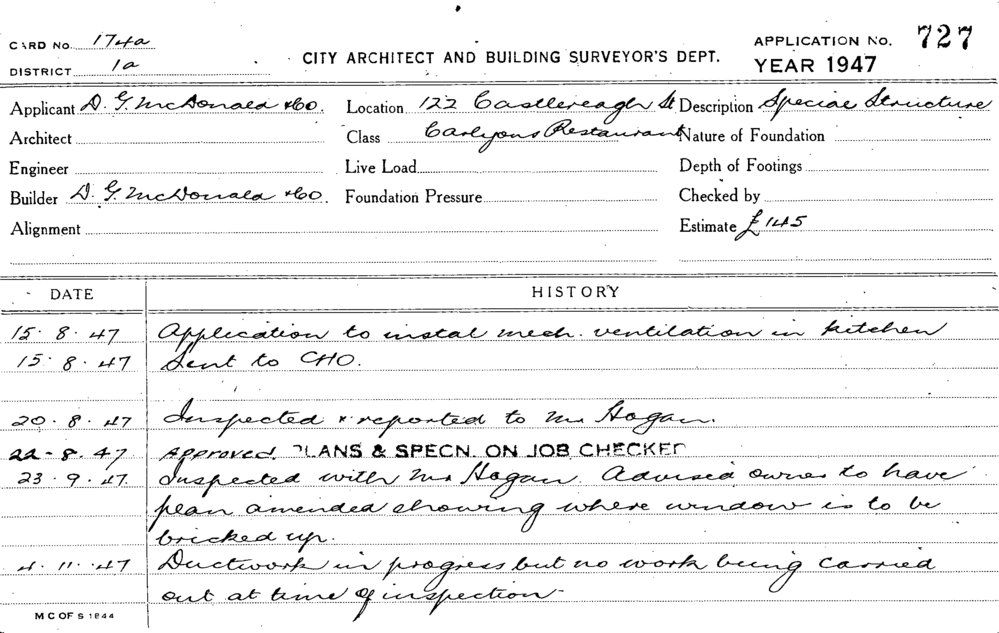 CARD No. 174a
DISTRICT 1a
CITY ARCHITECT AND BUILDING SURVEYOR'S DEPT.
APPLICATION No. 727
YEAR 1947
Applicant D. G. McDonald & Co. Location 122 Castlereagh St Description Special Structure
Architect Class Carlyons Restaurant Nature of Foundation
Engineer Live Load Depth of Footings
Builder D. G. McDonald & Co. Foundation Pressure Checked by
Alignment Estimate £145
DATE HISTORY
15. 8. 47 Application to instal mech. ventilation in kitchen
15. 8. 47 Sent to CHO.
20. 8. 47 Inspected & reported to Mr Hogan.
22 - 8. 47 Approved. PLANS & SPECN. ON JOB CHECKED
23. 9. 47. Inspected with Mr Hogan. Advised owner to have
plan amended showing where window is to be
bricked up.
4. 11. 47 Ductwork in progress but no work being carried
out at time of inspection -
M C OF S 1844